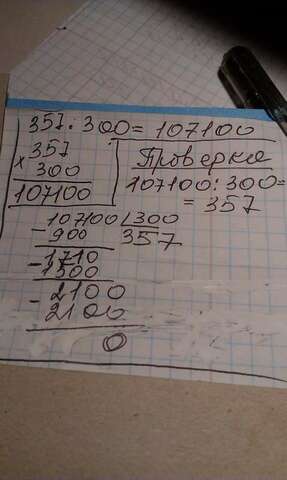 357:300=107100
× 357
300
107100
Проверка
107100:300=
=357
- 107100 300
900 357
- 1710
1500
- 2100
2100
0